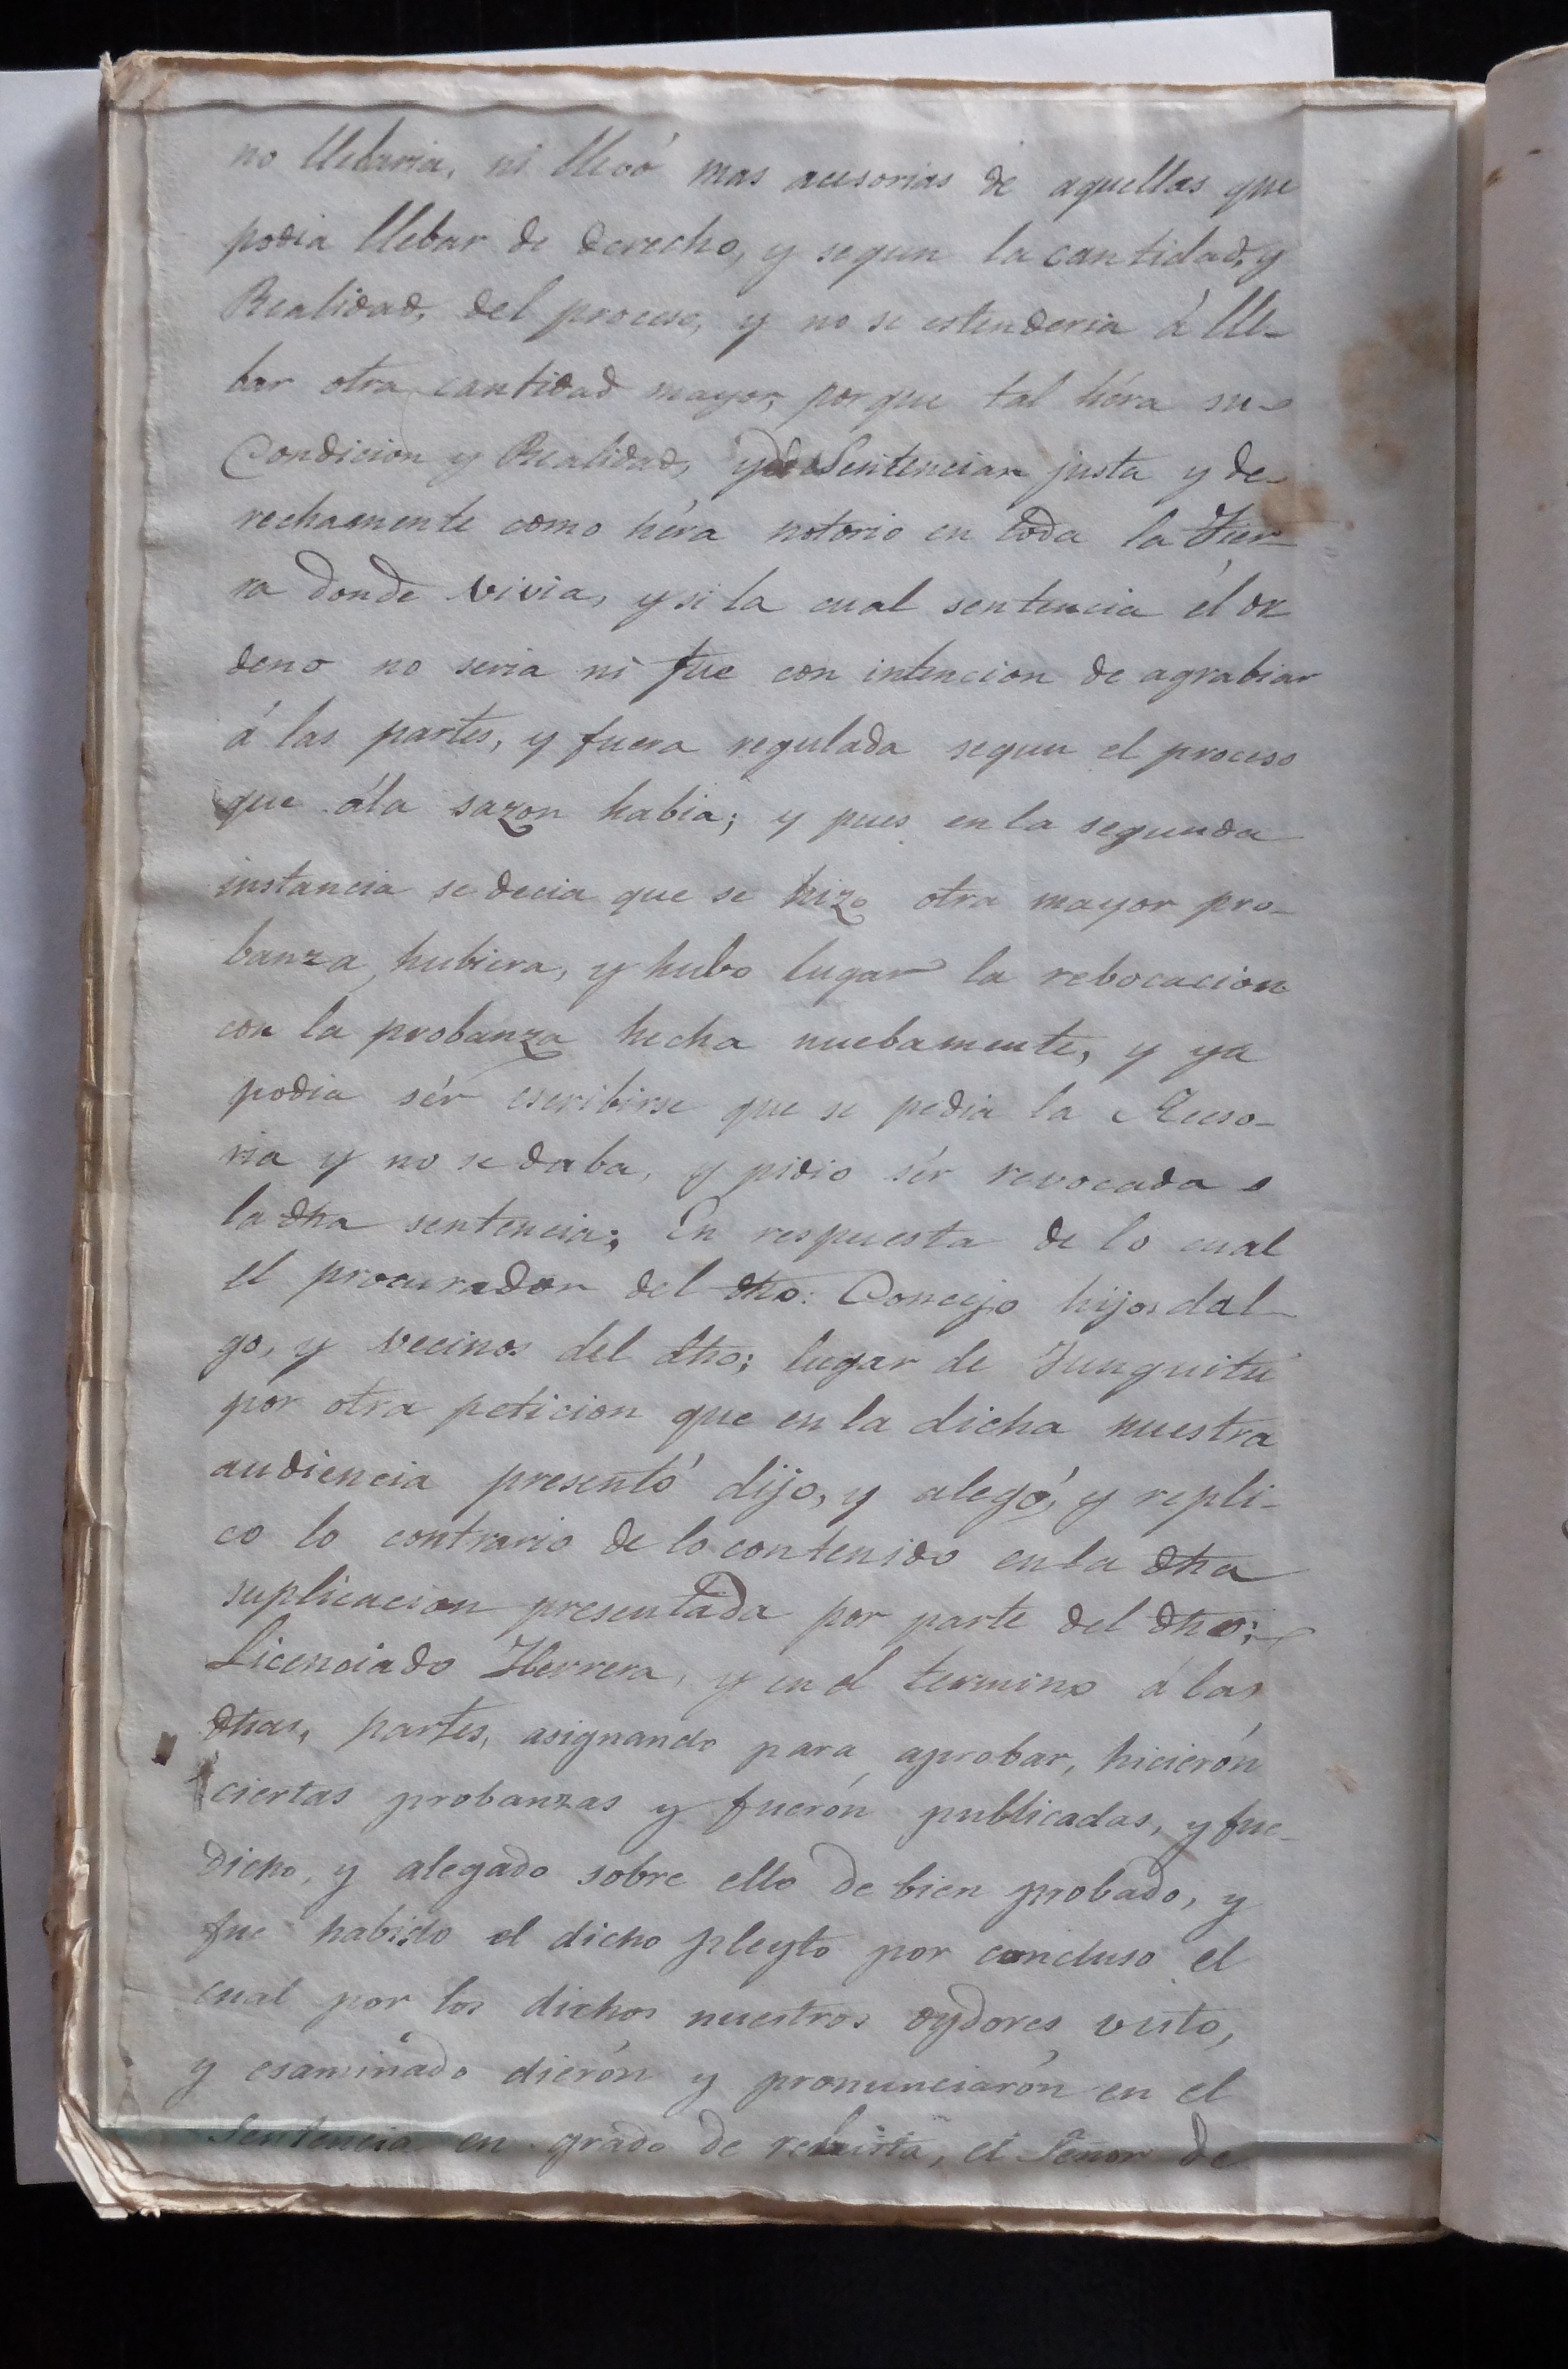 no llebaria, ni llevó mas acesorias de aquellas que
podia llebar de derecho, y segun la cantidad, y
Realidad, del proceso, y no se estenderia á lle-
bar otra cantidad mayor, porque tal héra su
Condicion y Realidad, y de Sentenciar justa y de-
rechamente como héra notorio en toda la Tier-
ra donde vivia, y si la cual sentencia él or
deno no seria ni fue con intencion de agrabiar
á las partes, y fuera regulada segun el proceso
que á la sazon habia; y pues en la segunda
instancia se decia que se hizo otra mayor pro-
banza hubiera, y hubo lugar la rebocacion
con la probanza hecha nuebamente, y ya
podia sér escribirse que se pedia la Aceso-
ria y no se daba, y pidio sér revocada
la dha sentencia; En respuesta de lo cual
el procurador del dho: Concejo hijosdal-
go, y vecinos del dho; lugar de Junguitu
por otra peticion que en la dicha nuestra
audiencia presentó dijo, y alegó, y repli-
co lo contrario de lo contenido en la dha
suplicacion presentada por parte del dho;
Licenciado Herrera, y en el termino á las
dhas, partes, asignando para aprobar, hicierón
ciertas probanzas y fuerón publicadas, y fue
dicho, y alegado sobre ello de bien probado, y
fue habido el dicho pleyto por concluso el
cual por los dichos nuestros oydores visto,
y esaminado dierón y pronunciarón en el
Sentencia en grado de rebista, el Señor de